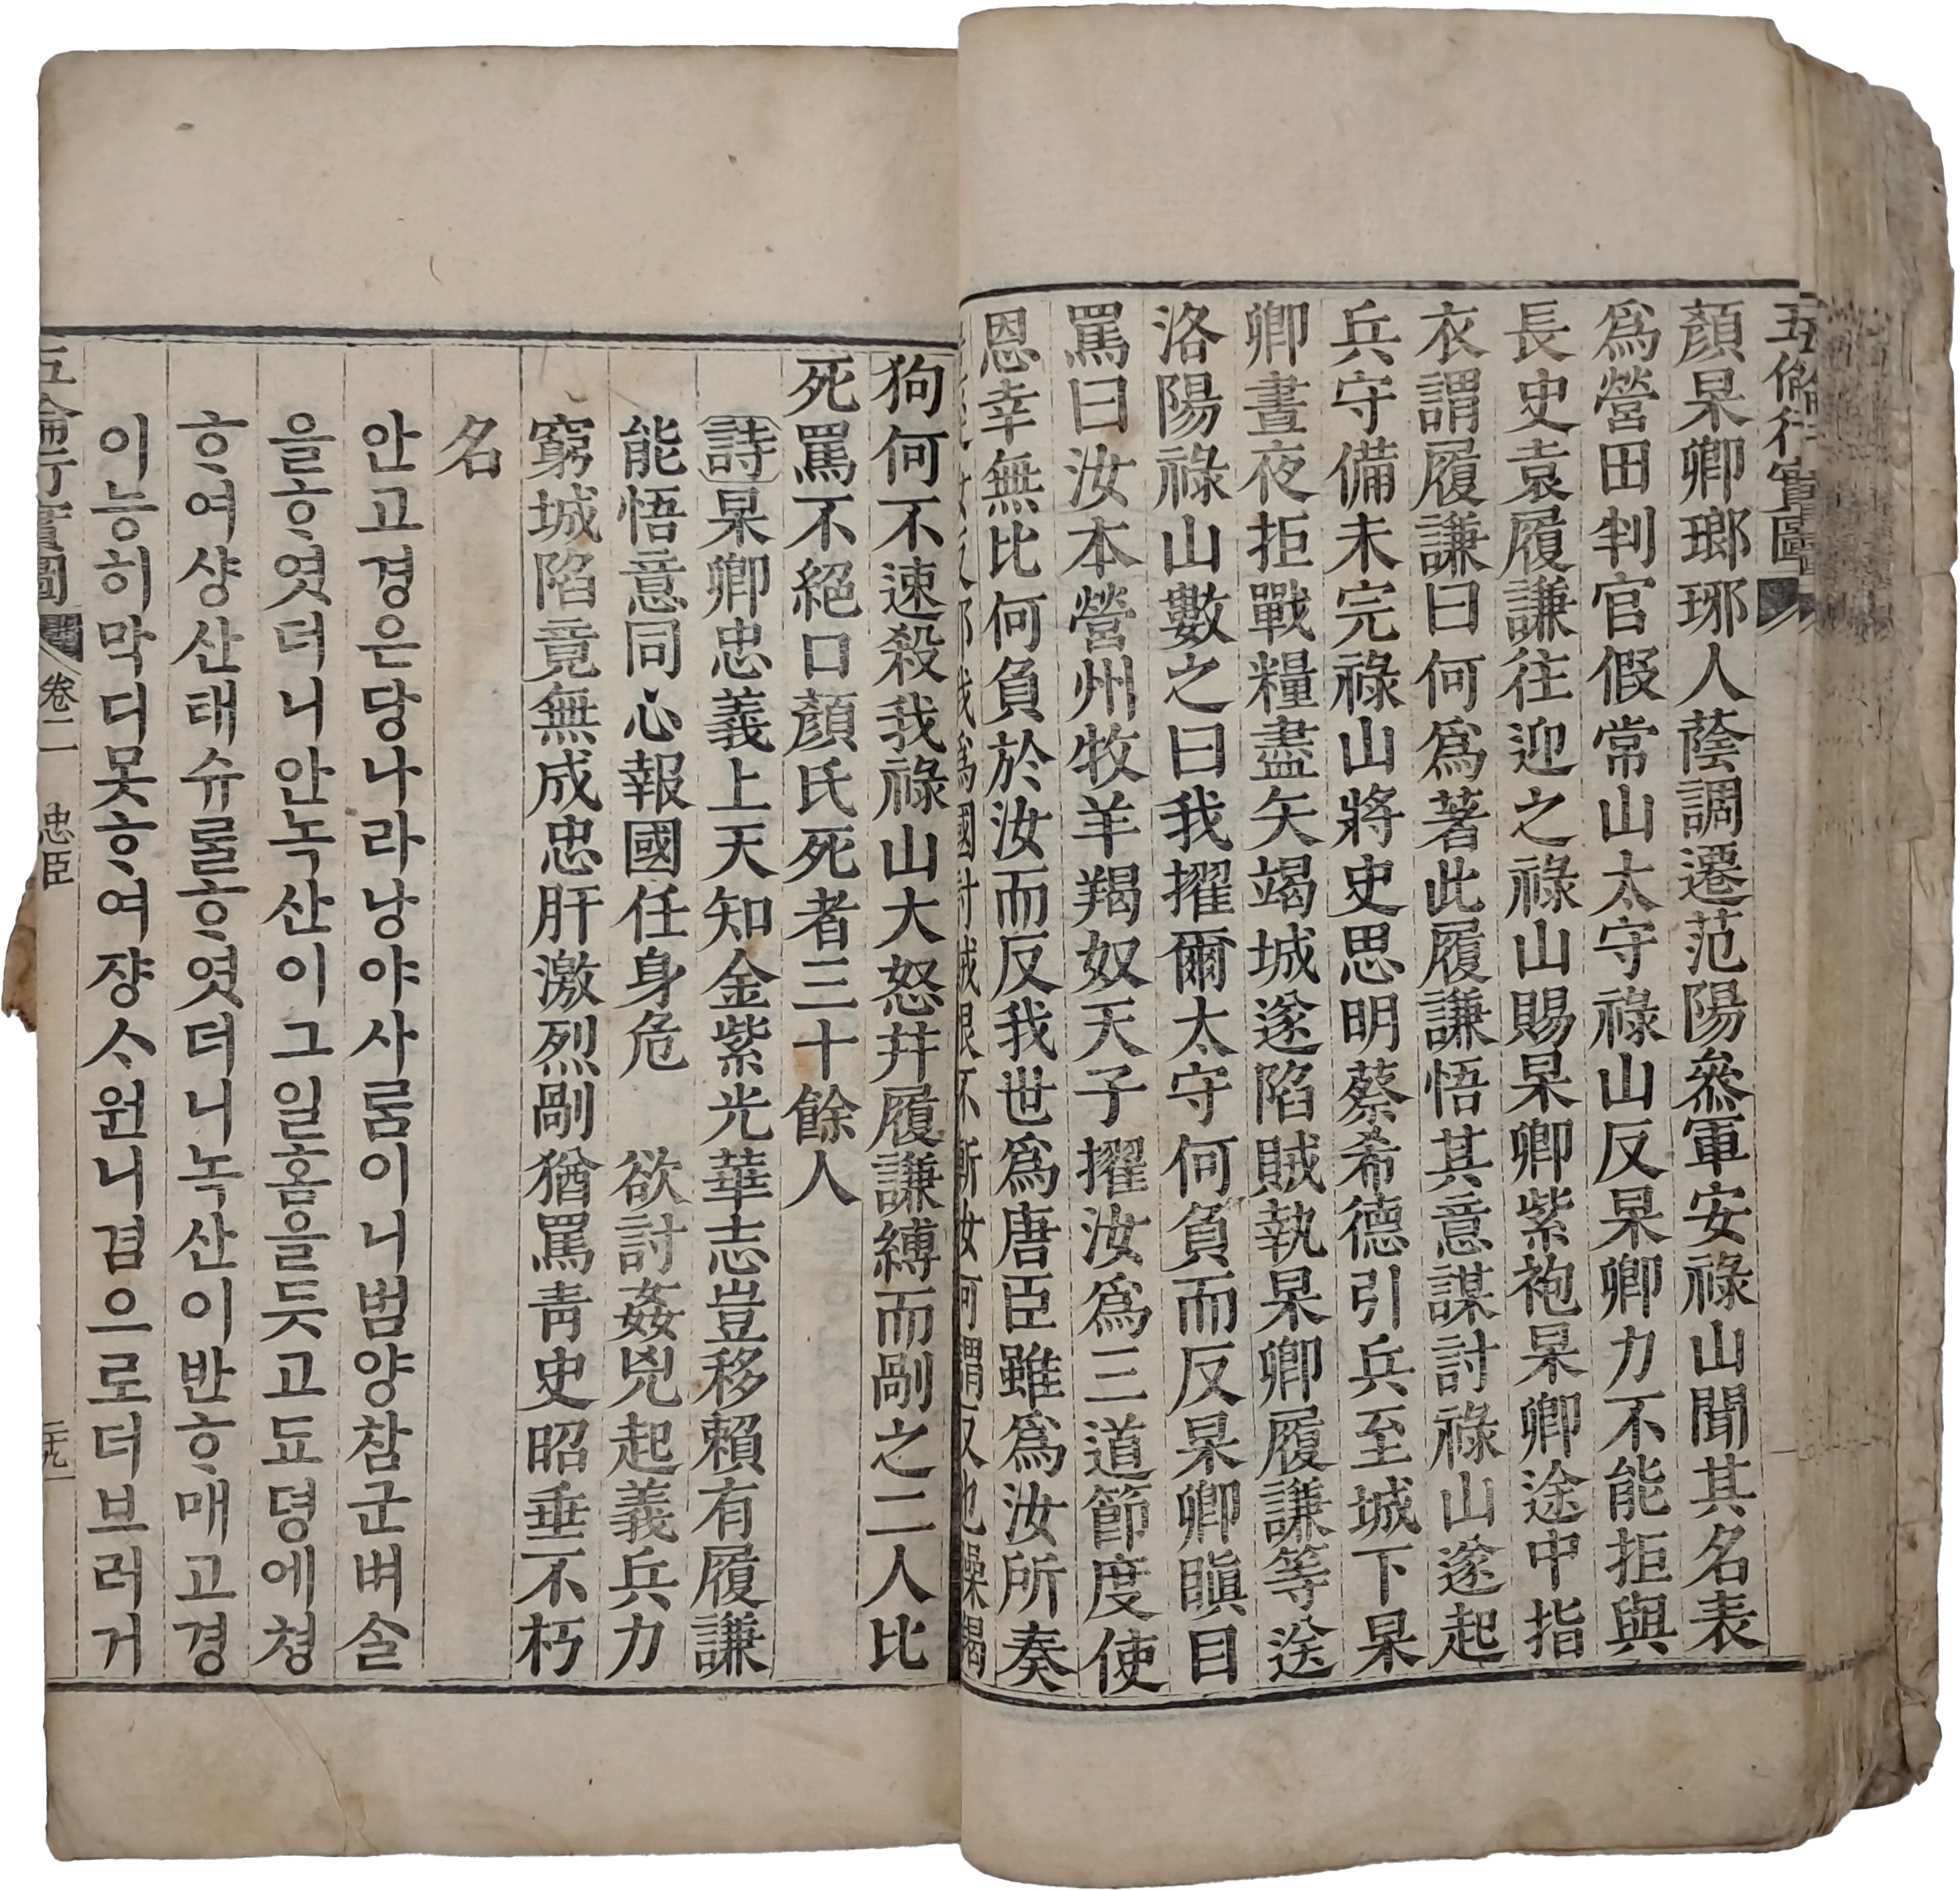 五倫行實圖
顏杲卿瑯琊人蔭調遷范陽叅軍安祿山聞其名表
爲營田判官假常山太守祿山反杲卿力不能拒與
長史袁履謙往迎之祿山賜杲卿紫袍杲卿途中指
衣謂履謙曰何爲著此履謙悟其意謀討祿山遂起
兵守備未完祿山將史思明蔡希德引兵至城下杲
卿晝夜拒戰糧盡矢竭城遂陷賊執杲卿履謙等送
洛陽祿山數之曰我擢爾太守何負而反杲卿瞋目
罵曰汝本營州牧羊羯奴天子擢汝爲三道節度使
恩幸無比何負於汝而反我世爲唐臣雖爲汝所奏
爲國討賊恨不斬汝何謂反也臊羯
狗何不速殺我祿山大怒幷履謙縛而剮之二人比
死罵不絕口顏氏死者三十餘人
詩杲卿忠義上天知金紫光華志豈移賴有履謙
能悟意同心報國任身危 欲討姦兇起義兵力
窮城陷竟無成忠肝激烈剮猶罵靑史昭垂不朽
名
안고경은당나라낭야사ᄅᆞᆷ이니범양참군벼ᄉᆞᆯ
을ᄒᆞ엿더니안녹산이그일홈을듯고됴뎡에쳥
ᄒᆞ여샹산태슈ᄅᆞᆯᄒᆞ엿더니녹산이반ᄒᆞ매고경
이능히막디못ᄒᆞ여쟝ᄉᆞ원니겸으로더브러거
五倫行實圖 卷二 忠臣 二十九